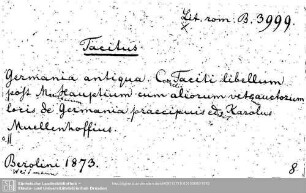 Lit. rom. B. 3999.
Tacitus
Germania antiqua. C. Taciti libellum
post Mauricium Hauptium cum aliorum vet. auctorum
locis de Germania praecipuis ed. Karolus
Muellenhoffius.
Berolini 1873.
Weidmann
8
Sächsische Landesbibliothek -
Staats- und Universitätsbibliothek Dresden